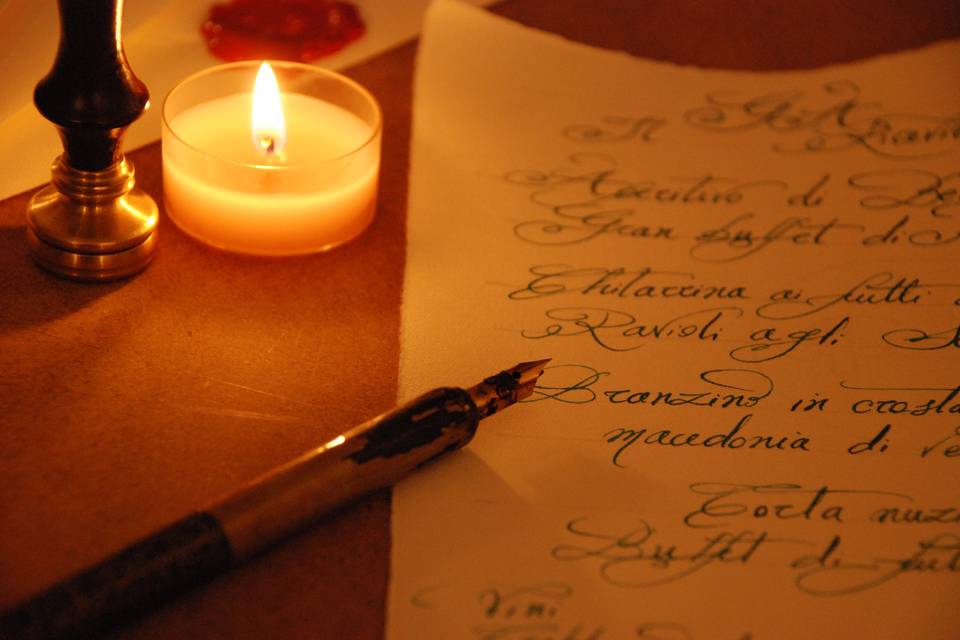 Il
Aperitivo di Be
Gran buffet di
Chitarrina ai frutti
Ravioli agli S
Branzino in crosta
macedonia di ve
Torta nuzi
Buffet di frut
Vini